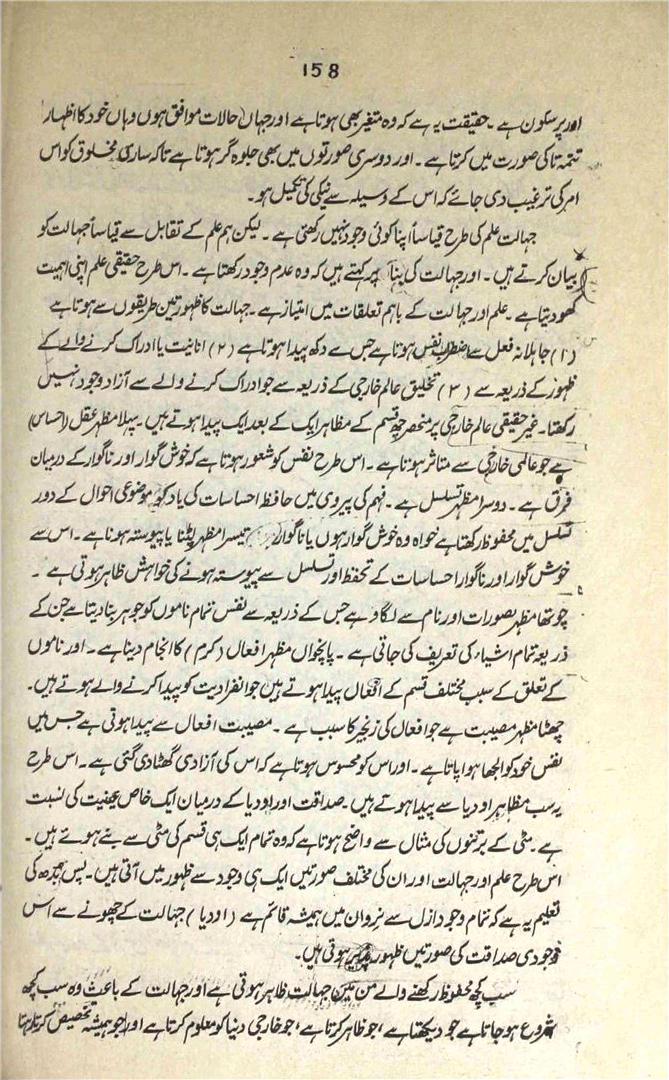 158
اور پر سکون ہے ۔ حقیقت یہ ہے کہ وہ متغیر بھی ہوتا ہے اور جہاں حالات موافق ہوں وہاں خود کا اظہار
تتھتا کی صورت میں کرتا ہے ۔ اور دوسری صورتوں میں بھی جلوہ گر ہوتا ہے تاکہ ساری مخلوق کو اس
امر کی ترغیب دی جائے کہ اس کے وسیلہ سے نیکی کی تکمیل ہو ۔
جہالت علم کی طرح قیاساً اپنا کوئی وجود نہیں رکھتی ہے ۔ لیکن ہم علم کے تقابل سے قیاساً جہالت کو
بیان کرتے ہیں ۔ اور جہالت کی بنا پر کہتے ہیں کہ وہ عدم وجود رکھتا ہے ۔ اس طرح حقیقی علم اپنی اہمیت
کھو دیتا ہے ۔ علم اور جہالت کے باہم تعلقات میں امتیاز ہے ۔ جہالت کا ظہور تین طریقوں سے ہوتا ہے
(۱) جاہلانہ فعل سے اضطراب نفس ہوتا ہے جس سے دکھ پیدا ہوتا ہے (۲) انانیت یا ادراک کرنے والے کے
ظہور کے ذریعہ سے (۳) تخلیق عالم خارجی کے ذریعہ سے جو ادراک کرنے والے سے آزاد وجود نہیں
رکھتا ۔ غیر حقیقی عالم خارجی پر منحصر چھ قسم کے مظاہر ایک کے بعد ایک پیدا ہوتے ہیں ۔ پہلا مظہر عقل (احساس)
ہے جو عالمی خارجی سے متاثر ہوتا ہے ۔ اس طرح نفس کو شعور ہوتا ہے کہ خوش گوار اور ناگوار کے درمیان
فرق ہے ۔ دوسرا مظہر تسلسل ہے ۔ فہم کی پیروی میں حافظہ احساسات کی یاد کو موضوعی احوال کے دور
تسلسل میں محفوظ رکھتا ہے خواہ وہ خوش گوار ہوں یا ناگوار تیسرا مظہر لپٹنا یا پیوستہ ہونا ہے ۔ اس سے
خوش گوار اور ناگوار احساسات کے تحفظ اور تسلسل سے پیوستہ ہونے کی خواہش ظاہر ہوتی ہے ۔
چوتھا مظہر تصورات اور نام سے لگاو ہے جس کے ذریعہ سے نفس تمام ناموں کو جوہر بنا دیتا ہے جن کے
ذریعہ تمام اشیاء کی تعریف کی جاتی ہے ۔ پانچواں مظہر افعال (کرم) کا انجام دینا ہے ۔ اور ناموں
کے تعلق کے سبب مختلف قسم کے افعال پیدا ہوتے ہیں جو انفرادیت کو پیدا کرنے والے ہوتے ہیں ۔
چھٹا مظہر مصیبت ہے جو افعال کی زنجیر کا سبب ہے ۔ مصیبت افعال سے پیدا ہوتی ہے جس میں
نفس خود کو الجھا ہوا پاتا ہے ۔ اور اس کو محسوس ہوتا ہے کہ اس کی آزادی گھٹا دی گئی ہے ۔ اس طرح
یہ سب مظاہر اودیا سے پیدا ہوتے ہیں ۔ صداقت اور اودیا کے درمیان ایک خاص عینیت کی نسبت
ہے ۔ مٹی کے برتنوں کی مثال سے واضح ہوتا ہے کہ وہ تمام ایک ہی قسم کی مٹی سے بنے ہوئے ہیں ۔
اس طرح علم اور جہالت اور ان کی مختلف صورتیں ایک ہی وجود سے ظہور میں آتی ہیں ۔ پس بدھ کی
تعلیم یہ ہے کہ تمام وجود ازل سے نروان میں ہمیشہ قائم ہے (اودیا) جہالت کے چھونے سے اس
وجودی صداقت کی صورتیں ظہور پذیر ہوتی ہیں ۔
سب کچھ محفوظ رکھنے والے من میں جہالت ظاہر ہوتی ہے اور جہالت کے باعث وہ سب کچھ
شروع ہو جاتا ہے جو دیکھتا ہے ، جو ظاہر کرتا ہے ، جو خارجی دنیا کو معلوم کرتا ہے اور جو ہمیشہ تخصیص کرتا رہتا